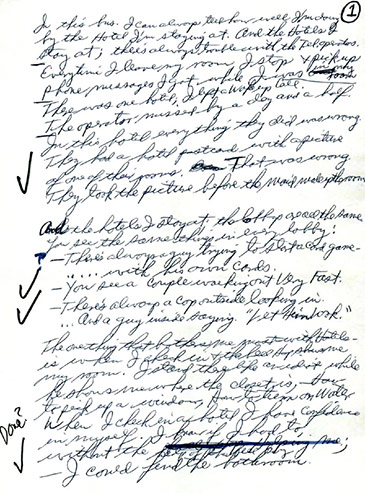 ①
In this bus. I can always tell how well I'm doing
by the Hotel I'm staying at. And the Hotels I
stay at; there's always trouble with the Tel operators.
- Everytime I leave my room, I stop & pick up
phone messages I got while I was
- There was one hotel, I left a wake up call.
The operator missed by a day and a half
In this hotel everything they did was wrong
They had a hotel postcard with a picture
of one of their rooms. That was wrong
They took the picture before the maid made up the room
And the hotels I stay at the lobbys are all the same
You see the same things in every lobby:
- There's always a guy trying to start a card game
..... with his own cards.
- You see a couple walking out Very Fast.
- There's always a cop outside looking in.
... And a guy inside saying, "Let Him look."
The one thing that bothers me most with Hotels-
is when I check in & the shows me
my room. I stand there like an idiot while
he shows me where the closet is, - how
to pick up a window, how to turn on Water
When I check in a hotel I have confidence
in myself, I I had to,
without the
- I could find the bathroom.
Done?